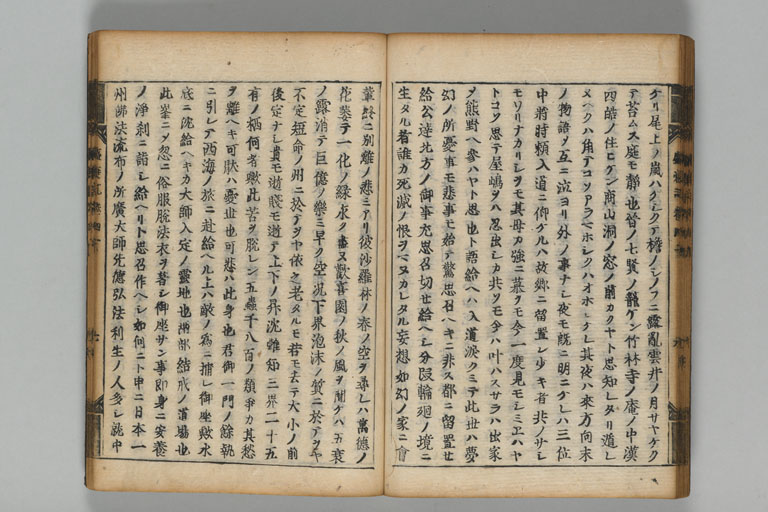 ケリ尾上ノ嵐ハケシクテ檐ノシノフニ露亂雲井ノ月サヤケク
テ苔ムス庭モ靜也晉ノ七賢ノ籠ケン竹林寺ノ庵ノ中漢
四皓ノ住ヒケン商山洞ノ窓ノ前カクヤト思知レタリ過シ
メヘクハ角テコソアラマホシクハオホシケレ其夜ハ來方向末
ノ物語ヲ互ニ泣ヨリ外ノ事ナシ夜モ既ニ明ニケレハ三位
中將時頼入道ニ仰ケルハ故郷ニ留置シ少キ者共ノサシ
モソリナカリシヲモ其母カ強ニ慕クモ今一度見モシミエハヤ
トコソ思テ屋嶋ヲハ忍出シカ共ソモ今ハ叶ハスサラハ出家
ヲ熊野ヘ參ハヤト思也ト語給ヘハ入道淚クミテ此世ハ夢
幻ノ所憂事モ悲事モ始テ驚思召ヘキニ非ス都ニ留置セ
給公達北方ノ御事尤思召切セ給ヘシ分段輪廻ノ境ニ
生タル者誰カ死滅ノ恨ヲマヌカレタル妄想如幻ノ家ニ會
輩終ニ別離ノ悲ミアリ彼沙羅林ノ春ノ空ヲ尋レハ萬德ノ
花萎テ一化ノ緑水盡又歡喜園ノ秋ノ風ヲ聞ケハ五衰
ノ露消テ巨億ノ樂ミ早ク空況下界泡沫ノ質ニ於テヲヤ
不定短命ノ州ニ於テヲヤ依之老タルモ若モ去テ大小ノ前
後定ナシ貴モ賤モ逝テ上下ノ升沈難知三界二十五
有ノ栖何者歟此苦ヲ脫レン五蟲千八百ノ類爭カ其愁
ヲ離ヘキ可猒ハ憂世也可悲ハ此身也君御一門ノ餘執
ニ引レテ西海ノ旅ニ赴給ヘル上ハ敵ノ爲ニ捕レ御座歟水
底ニ沈給ヘキカ大師入定ノ靈地也兩部結戒ノ道場也
此峯ニテ忽ニ俗服脫法衣ヲ替シ御座サン事即身ニ安養
ノ淨刹ニ詣シ給ヘリト思召作ヘシ如何ニト申ニ日本一
州佛法流布ノ所廣大師先德弘法利生ノ人多シ就中